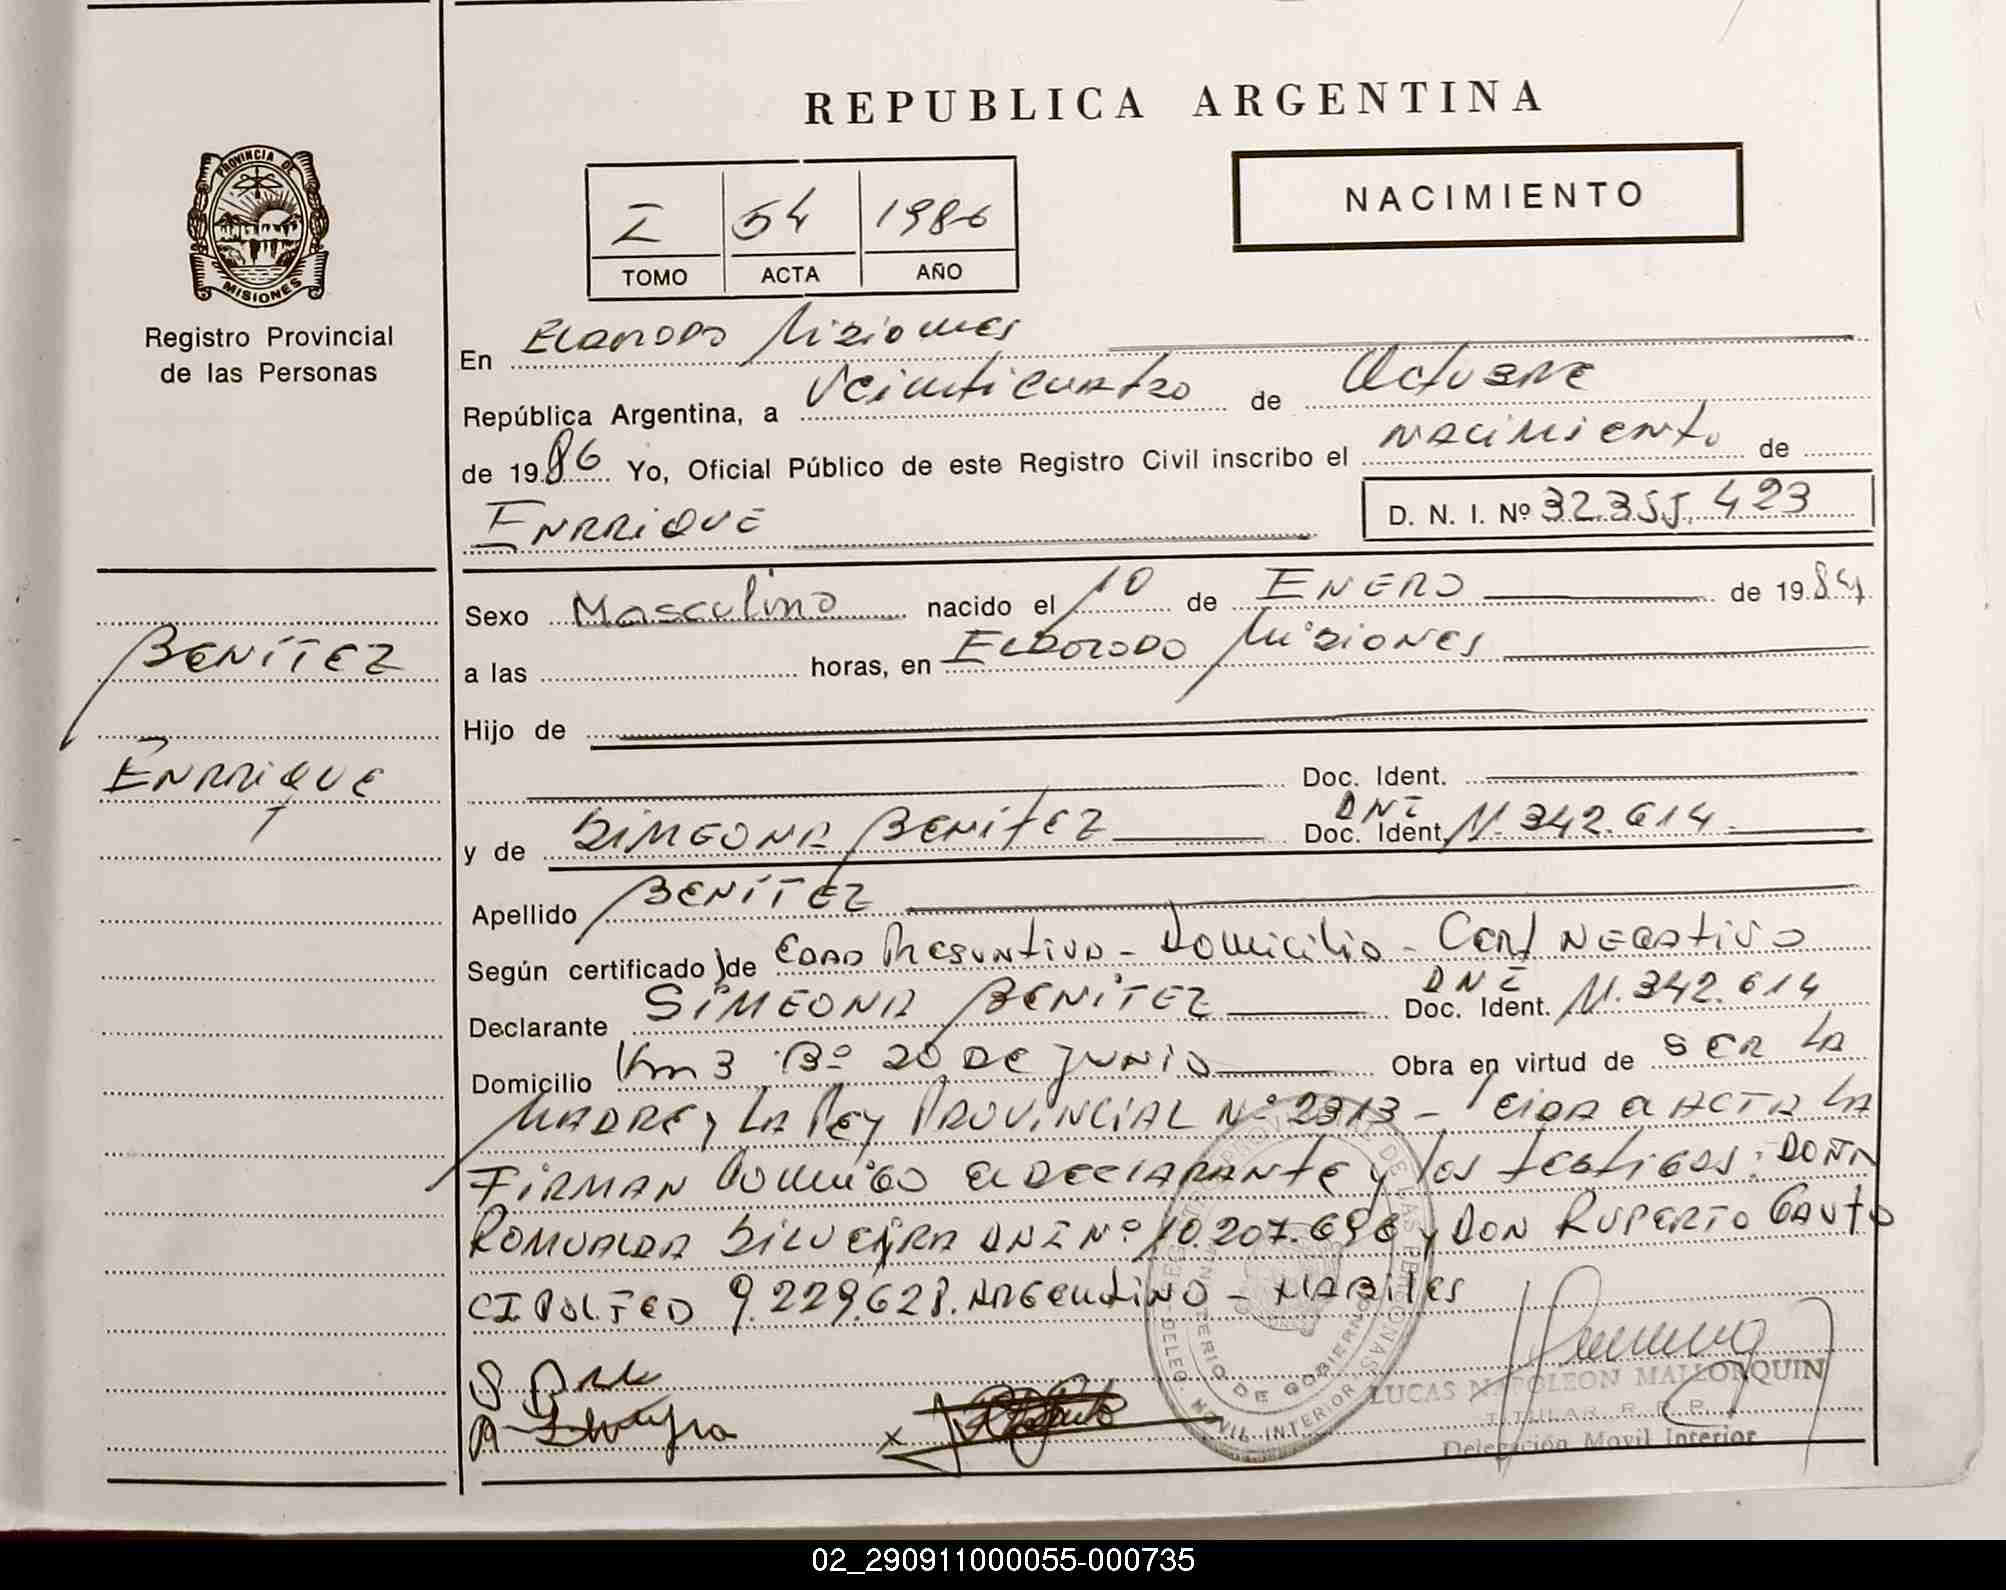 REPUBLICA ARGENTINA
PROVINCIA DE
MISIONES
Registro Provincial
de las Personas
I 54 1986
TOMO ACTA AÑO
NACIMIENTO
En Eldorado Misiones
República Argentina, a Veinticuatro de Octubre
de 1986 Yo, Oficial Público de este Registro Civil inscribo el nacimiento de
ENRRIQUE D. N. I. Nº 32.355.423
Sexo Masculino nacido el 10 de ENERO de 1984
a las horas, en ELDORADO Misiones
BENÍTEZ
Hijo de
ENRRIQUE
Doc. Ident.
y de SIMEONA BENÍTEZ DNI Doc. Ident. 11.342.614
Apellido BENÍTEZ
Según certificado de Edad Presuntiva - Domicilio - Cert Negativo
Declarante SIMEONA BENÍTEZ DNI Doc. Ident. 11.342.614
Domicilio Km 3 Bº 20 DE JUNIO Obra en virtud de SER LA
MADRE y LA Ley PROVINCIAL Nº 2313 - leida el ACTA LA
FIRMAN conmigo el DECLARANTE y los testigos: DOÑA
ROMUALDA SILVEIRA DNI Nº 10.207.696 y DON RUPERTO GAUTO
CI POL FED 9.229.628. ARGENTINO - HABILES
LUCAS NAPOLEON MALLORQUIN
TITULAR R. P. P.
Delegación Movil Interior
02_290911000055-000735